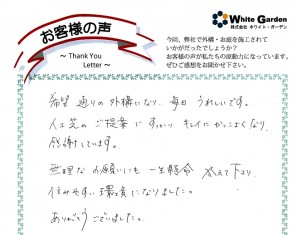 お客様の声
~ Thank You
Letter ~
White Garden
株式会社 ホワイト・ガーデン
今回、弊社で外構・お庭を施工されて
いかがだったでしょうか?
お客様の声が私たちの原動力になっています。
ぜひご感想をお聞かせ下さい。
希望通りの外構になり、毎日うれしいです。
人工芝のご提案にすっかりキレイにかっこよくなり、
感謝しています。
無理なお願いにも一生懸命答えて下さり
住みやすい環境になりました。
ありがとうございました。